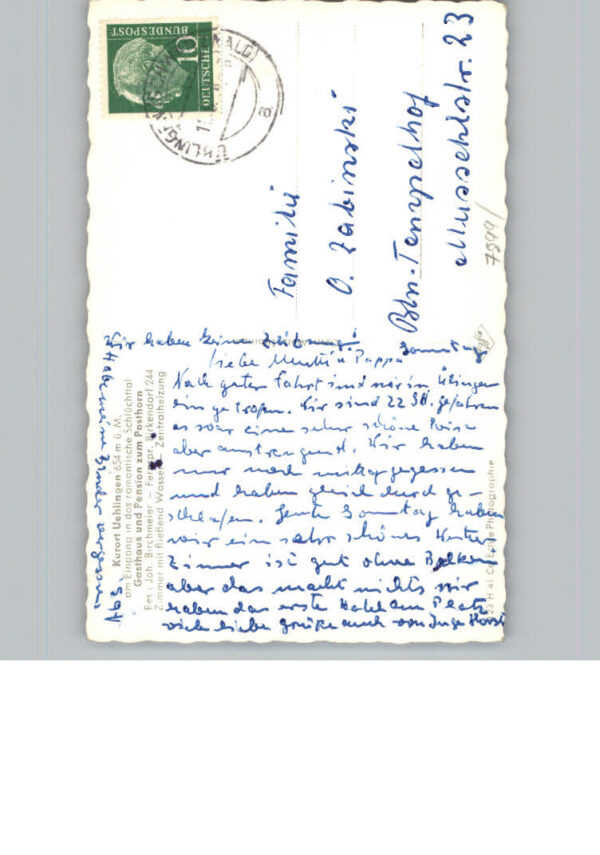 DEUTSCHE
BUNDESPOST
10
Familie
O. Zabinski
Bln.-Tempelhof
23
7599/
Wir haben keine
Sonntag
Liebe Mutti u Pappa
Nach guter Fahrt sind wir in Ülingen
ein getroffen. Wir sind 22 St. gefahren
es war eine sehr schöne Reise
aber anstrengend. Wir haben
nur noch mittag gegessen
und haben gleich durch ge-
schlafen. Heute Sonntag haben
wir ein sehr schönes Wetter
Zimmer ist gut ohne Balkon
aber das macht nichts wir
haben das erste Mahl am Platz
viele liebe grüße auch von Inge Horst
Habe meine Kinder vergessen
Kurort Uehlingen 654 m ü. M.
am Eingang in das romantische Schlüchttal
Gasthaus und Pension zum Posthorn
Bes.: Joh. Birchmeier – Fernspr. Birkendorf 244
Zimmer mit fließend Wasser – Zentralheizung
Photographie